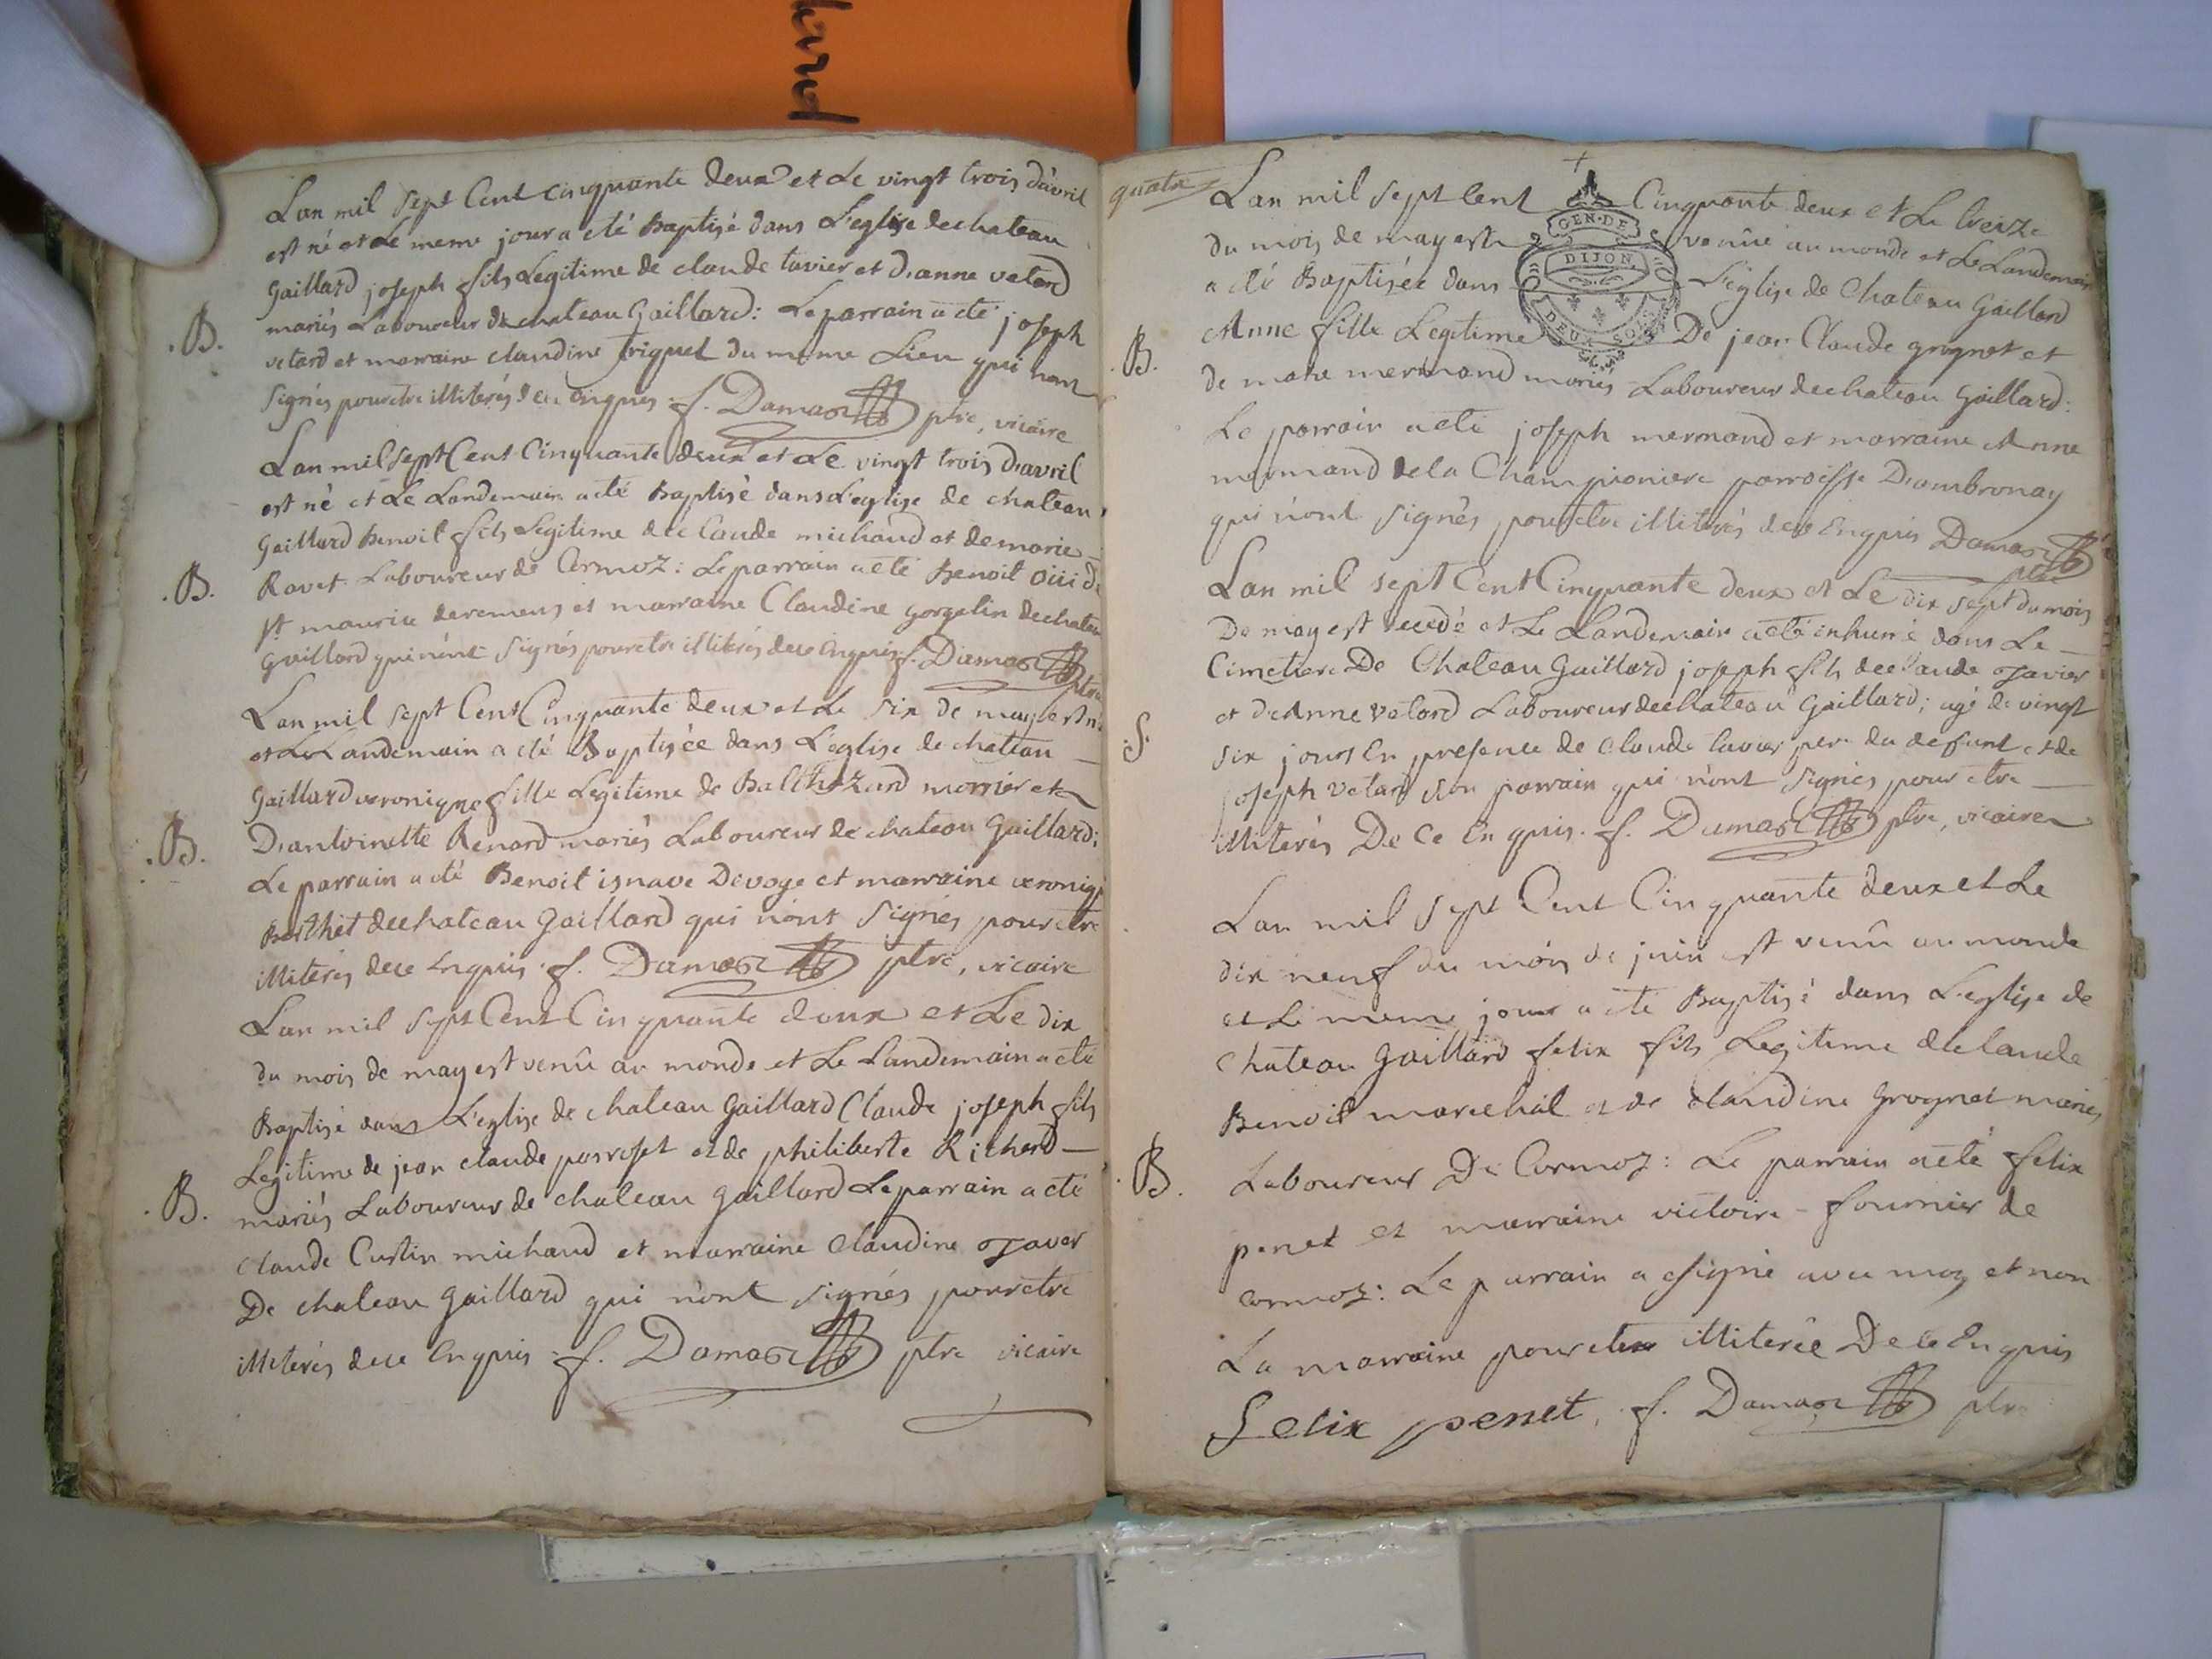 Lan mil sept Cent cinquante deux et Le vingt trois d'avril
est né et Le meme jour a eté Baptisé dans L'eglise de chateau
Gaillard joseph fils Legitime de claude tavier et d'anne vetard
mariés Laboureur de chateau Gaillard: Le parrain a eté joseph
.B.
vetard et marraine claudine triquet du meme Lieu qui n'ont
signés pour etre illiterés de ce enquis f. Damas ptre, vicaire
Lan mil sept Cent Cinquante deux et Le vingt trois d'avril
est né et Le Landemain a eté Baptisé dans L'eglise de chateau
Gaillard Benoit fils Legitime de claude michaud et de marie
.B.
Ravet Laboureur de Cormoz: Le parrain a eté Benoit de
st maurice de remens et marraine Claudine gorgelin de chateau
Gaillard qui n'ont signés pour etre illiterés de ce enquis f. Damas ptre
Lan mil sept Cent Cinquante deux et Le six de may est né
et Le Landemain a eté Baptisée dans L'eglise de chateau
Gaillard veronique fille Legitime de Balthazard morrier et
.B.
D'antoinette Renard mariés Laboureur de chateau Gaillard:
Le parrain a eté Benoit isnave De voge et marraine veroniq
Berthet de chateau Gaillard qui n'ont signés pour etre
illiterés de ce enquis f. Damas ptre, vicaire
Lan mil sept Cent Cinquante deux et Le dix
du mois de may est venû au monde et Le Landemain a eté
Baptisé dans L'eglise de chateau Gaillard Claude joseph fils
Legitime de jean claude et de philiberte Richerd
.B.
mariés Laboureur de chateau Gaillard Le parrain a eté
claude Custin michaud et marraine claudine
De chateau Gaillard qui n'ont signés pour etre
illiterés de ce enquis f. Damas ptre vicaire
quatre
Lan mil sept Cent Cinquante deux et Le treize
du mois de may est venûe au monde et Le Landemain
a eté Baptisée dans L'eglise de Chateau Gaillard
GEN. DE
DIJON.
DEUX SOLS
.B.
Anne fille Legitime De jean Claude grognet et
de marie mermand mariés Laboureur de chateau Gaillard:
Le parrain a eté joseph mermand et marraine Anne
mermand de la Championiere parroisse D'ambronay
qui n'ont signés pour etre illiterés de ce Enquis Damas
ptre
Lan mil sept Cent Cinquante deux et Le dix sept du mois
De may est et Le Landemain a eté inhumé dans Le
Cimetiere De Chateau Gaillard joseph fils de claude
et d'Anne vetard Laboureur de chateau Gaillard; agé de vingt
.S.
six jours En presence de claude tavier pere du defunt et de
joseph vetard son parrain qui n'ont signés pour etre
illiterés De Ce Enquis. f. Damas ptre, vicaire
Lan mil sept Cent Cinquante deux et Le
dix neuf du mois de juin est venû au monde
et Le meme jour a eté Baptisé dans L'eglise de
chateau Gaillard felix fils Legitime de claude
Benoit marechal et de claudine Grognet mariés
.B.
Laboureur De Cormoz: Le parrain a eté felix
penet et marraine victoire fournier de
cormoz: Le parrain a signé avec moy et non
La marraine pour etre illiterée De ce Enquis
Felix penet, f. Damas ptre